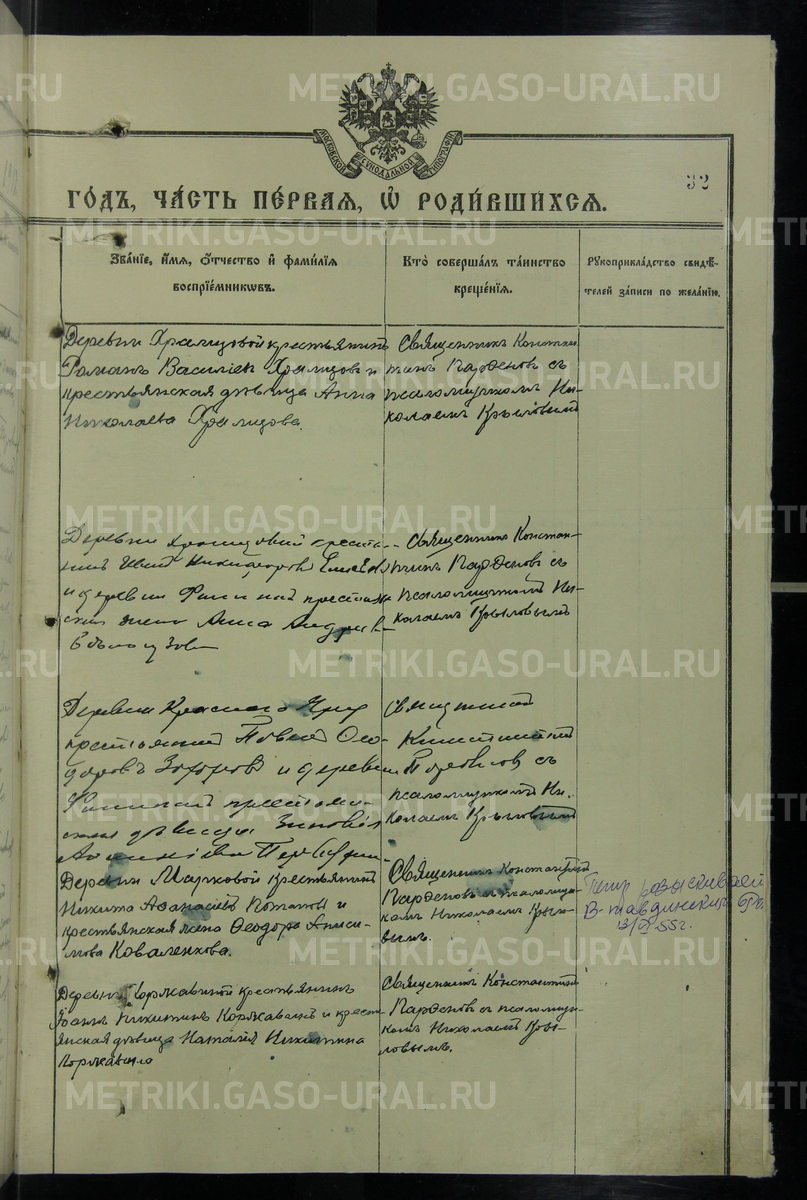 МОСКОВСКОЙ СѴНОДАЛЬНОЙ ТИПОГРАФІИ
32
ГО́ДЪ, ЧА́СТЬ ПЕ́РВАѦ, Ѽ РОДИ́ВШИХСѦ.
Зва́ніе, и҆́мѧ, ѻ҆́тчество и҆ фами́лїѧ
воспрїе́мникѡвъ.
Кто̀ соверша́лъ та́инство
креще́нїѧ.
Рꙋкоприкла́дство свидѣ́-
телей за́писи по жела́нїю.
Деревни Храмцовой крестьянинъ
Романъ Василіевъ Храмцовъ и
крестьянская дѣвица Анна
Николаева Храмцова.
Священникъ Констан-
тинъ Парѳеновъ съ
псаломщикомъ Ни-
колаемъ Крыловымъ
Деревни Храмцовой крестья-
нинъ Никифоровъ
и деревни крестьян-
ская жена Анна
Священникъ Констан-
тинъ Парѳеновъ съ
псаломщикомъ Ни-
колаемъ Крыловымъ
Деревни Краснаго Яру
крестьянинъ Павелъ Ѳео-
доровъ Захаровъ и деревни
крестьян-
ская дѣвица Зиновія
Священникъ
Константинъ
Парѳеновъ съ
псаломщикомъ Ни-
колаемъ Крыловымъ
Деревни Марковой крестьянинъ
Никита Аѳанасіевъ Потаповъ и
крестьянская жена Ѳеодора Аниси-
мова Коваленкова.
Священникъ Константинъ
Парѳеновъ съ псаломщи-
комъ Николаемъ Крыло-
вымъ.
В-Тавдинский
55 г.
Деревни Коржавиной крестьянинъ
Іоаннъ Никитинъ Коржавинъ и кресть-
янская дѣвица Наталія Никитина
Коржавина
Священникъ Константинъ
Парѳеновъ съ псаломщи-
комъ Николаемъ Кры-
ловымъ.
METRIKI.GASO-URAL.RU